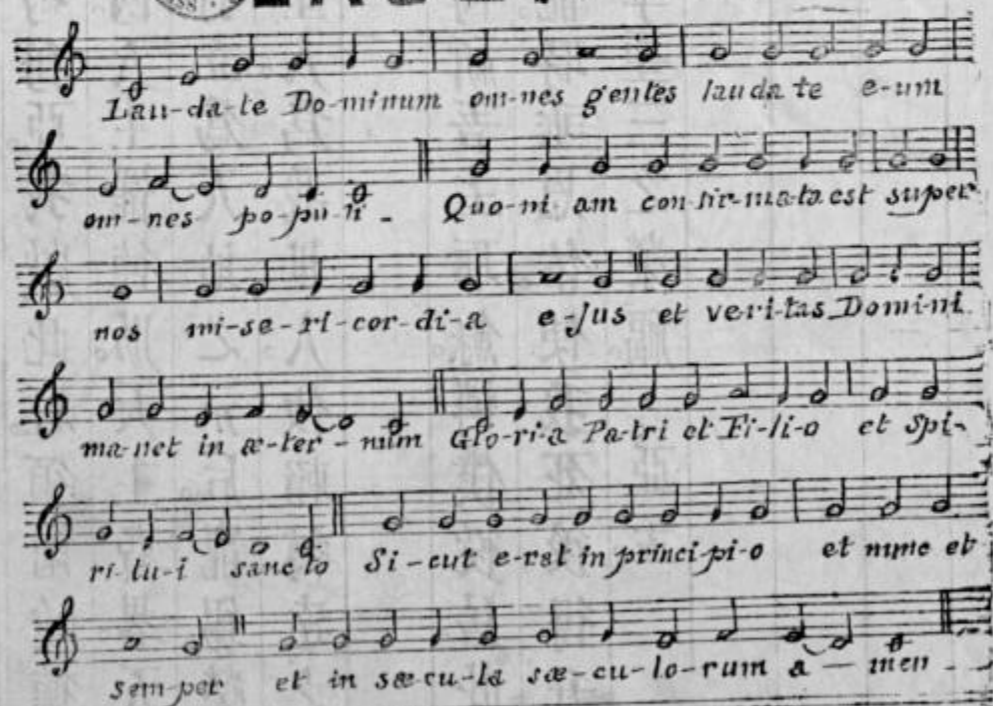 Lau-da-te Do-minum om-nes gentes lauda te e-um
om-nes po-pu-li - Quo-ni am con fir-ma-ta est super-
nos mi-se-ri-cor-di-a e-jus et ve-ri-tas Domi-ni
ma-net in æ-ter-num Glo-ri-a Pa-tri et Fi-li-o et Spi-
ri-tu-i sancto Si-cut e-rat in princi-pi-o et nunc et
sem-per et in sæ-cu-la sæ-cu-lo-rum a-men -